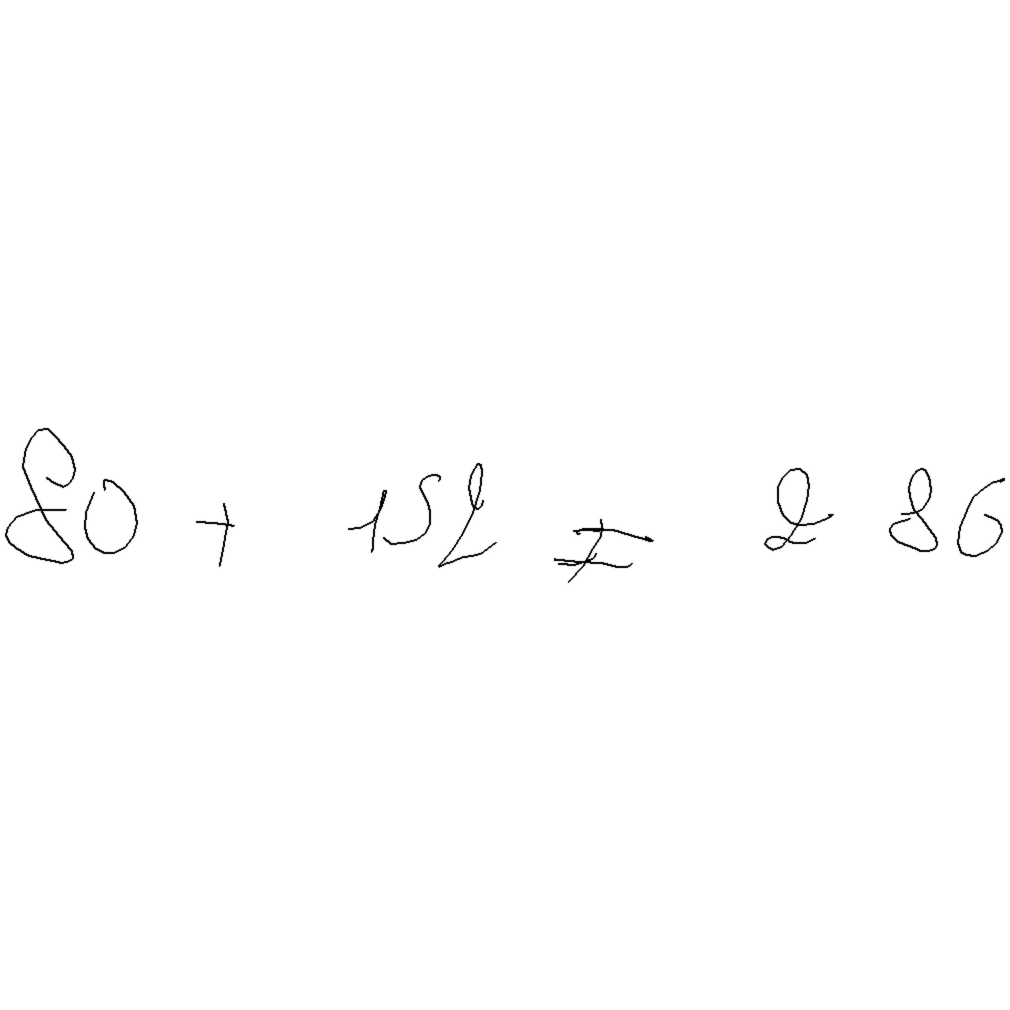 80 + 152 ≠ 286